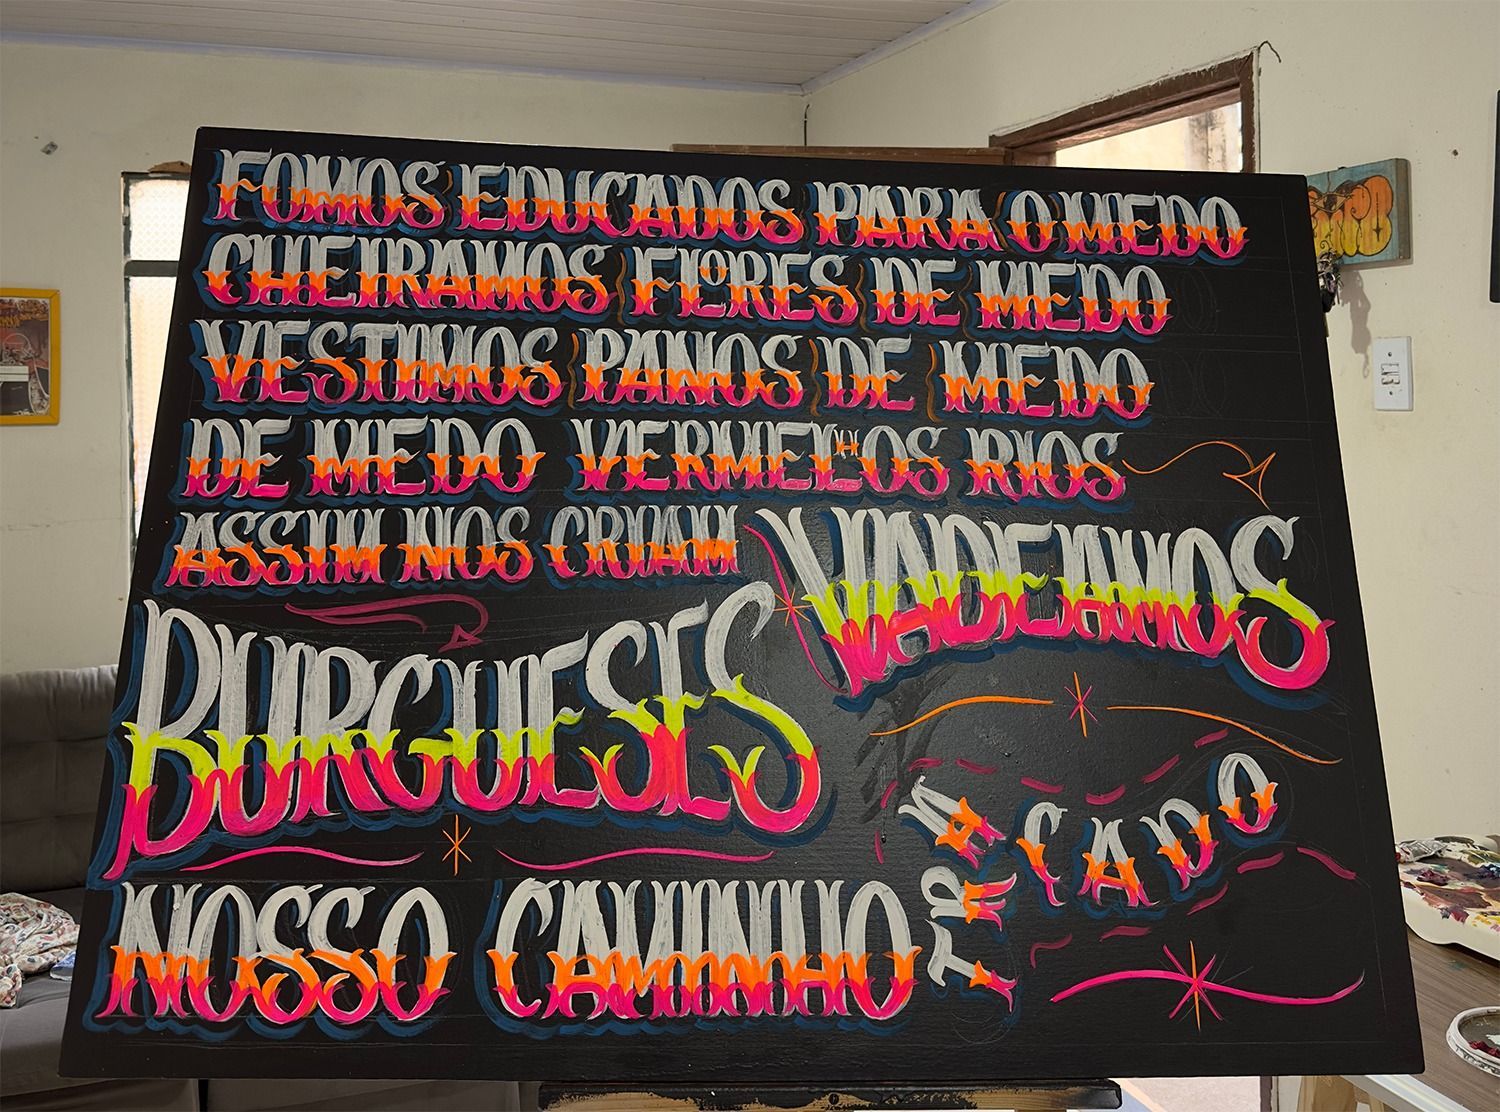 FOMOS EDUCADOS PARA O MEDO
CHEIRAMOS FLORES DE MEDO
VESTIMOS PANOS DE MEDO
DE MEDO VERMELHOS RIOS
ASSIM NOS CRIAM
BURGUESES
VADEAMOS
NOSSO CAMINHO
TRAÇADO